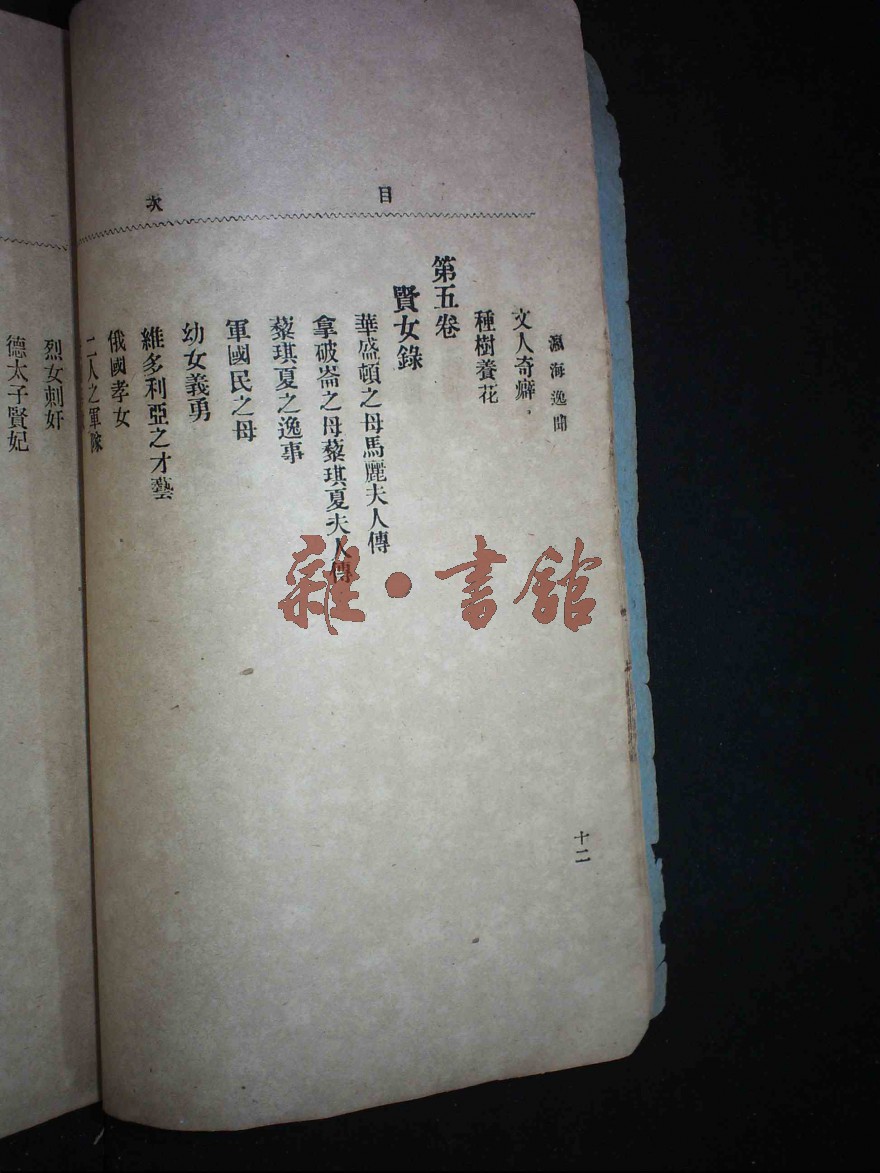 目次
瀛海逸聞
文人奇癖
種樹養花
第五卷
賢女錄
華盛頓之母馬麗夫人傳
拿破崙之母藜琪夏夫人傳
藜琪夏之逸事
軍國民之母
幼女義勇
維多利亞之才藝
俄國孝女
二人之軍隊
烈女刺奸
德太子賢妃
十二
雜·書館